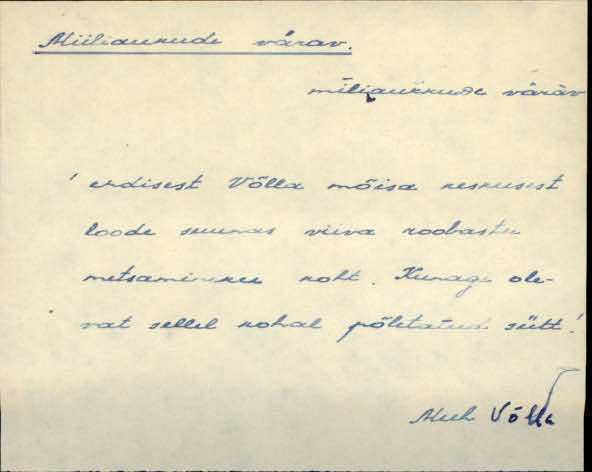 Miiliaukude värav.
miliaukkude väràv
' endisest Võlla mõisa keskusest
loode suunas viiva roobastee
metsamineku koht. Kunagi ole-
vat sellel kohal põletatud sütt!
Võlla